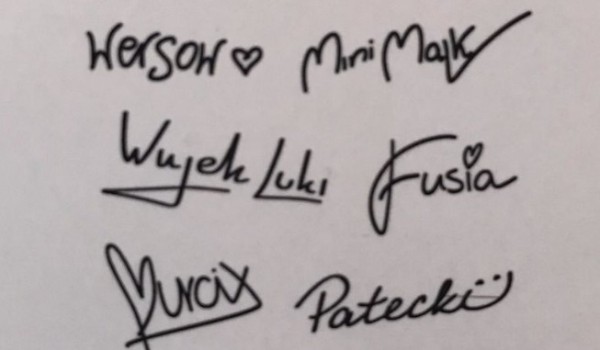 Wersow♡ Mini Majk
Wujek Luki Fusia
Murcix Patecki